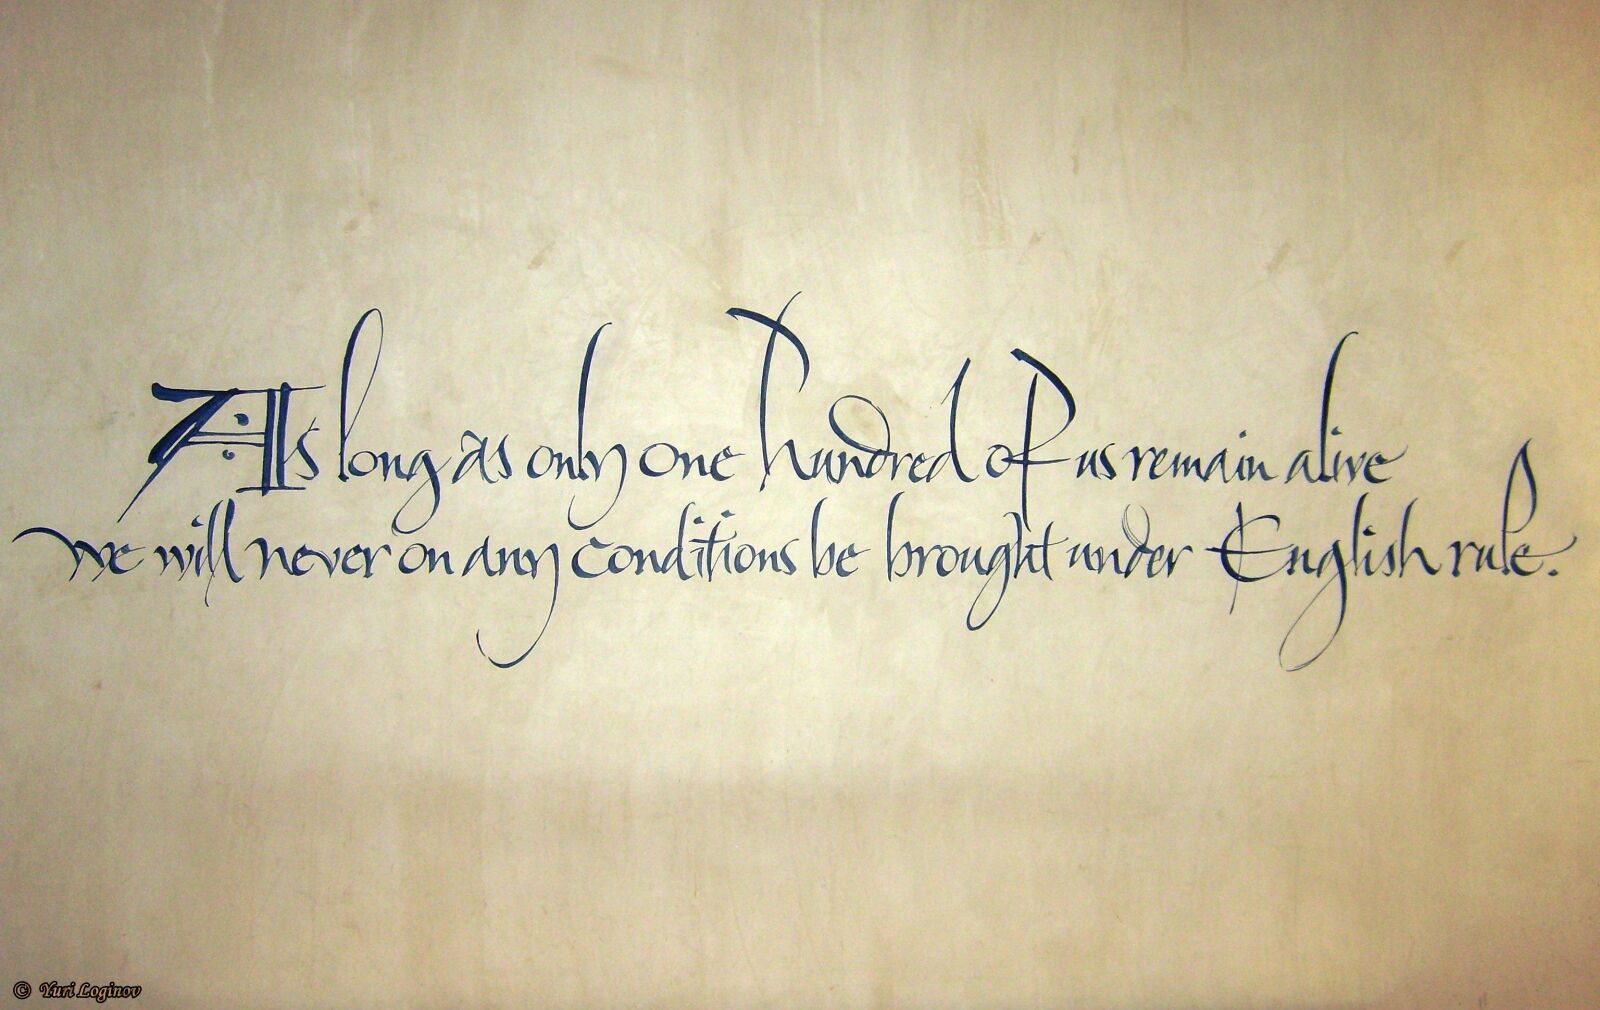 As long as only one hundred of us remain alive
we will never on any conditions be brought under English rule.
© Yuri Loginov